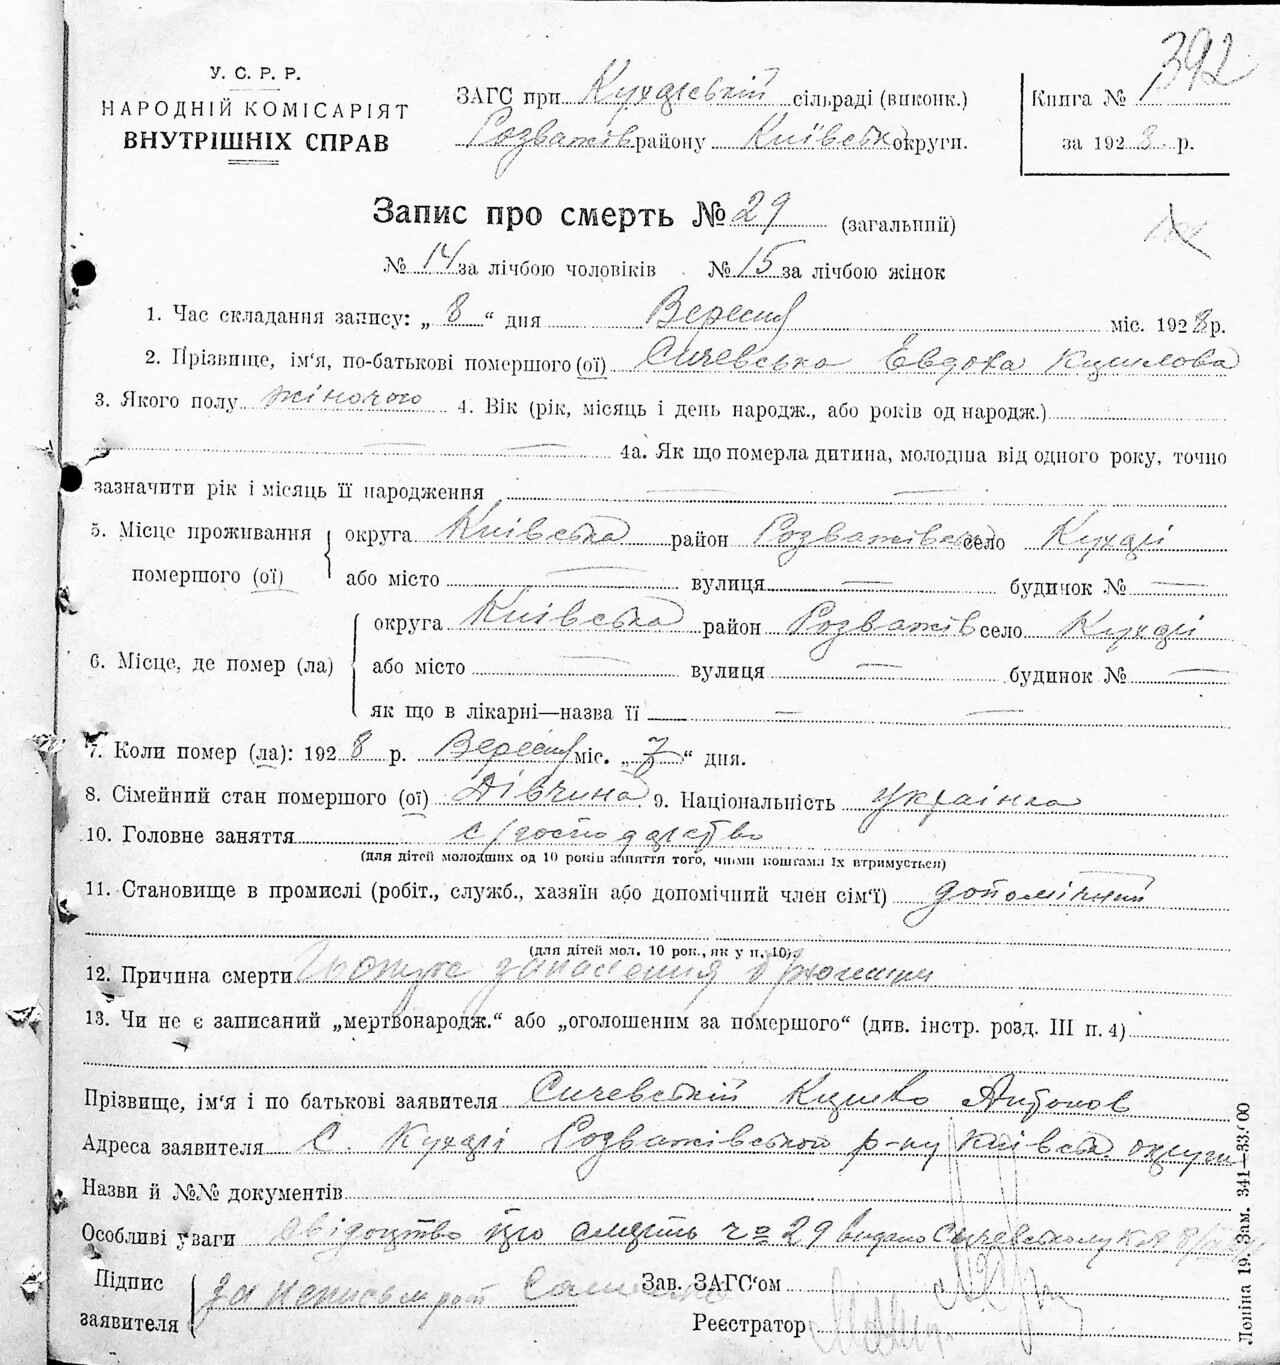 392
У. С. Р. Р.
НАРОДНІЙ КОМІСАРІЯТ
ВНУТРІШНІХ СПРАВ
ЗАГС при Кухарській сільраді (виконк.)
Розважів району Київськ округи.
Книга № 1
за 1928 р.
Запис про смерть № 29 (загальний)
№ 14 за лічбою чоловіків № 15 за лічбою жінок
1. Час складання запису: „ 8 “ дня Вересня міс. 1928 р.
2. Прізвище, ім‘я, по-батькові помершого (ої) Сичевська Евдоха
3. Якого полу жіночого 4. Вік (рік, місяць і день народж., або років од народж.)
4а. Як що померла дитина, молодша від одного року, точно
зазначити рік і місяць її народження
5. Місце проживання помершого (ої) округа Київська район Розважівськ село Кухарі
або місто вулиця будинок №
6. Місце, де помер (ла) округа Київська район Розважів село Кухарі
або місто вулиця будинок №
як що в лікарні—назва її
7. Коли помер (ла): 1928 р. Вересня міс. „ 7 “ дня.
8. Сімейний стан помершого (ої) Дівчина 9. Національність українка
10. Головне заняття с/господарство
(для дітей молодших од 10 років заняття того, чиїми коштами їх втримується)
11. Становище в промислі (робіт., служб., хазяїн або допомічний член сім‘ї) допомічний
(для дітей мол. 10 рок., як у п. 10).
12. Причина смерти
13. Чи не є записаний „мертвонародж.“ або „оголошеним за помершого“ (див. інстр. розд. III п. 4)
Прізвище, ім‘я і по батькові заявителя Сичевській Антонов
Адреса заявителя С. Кухарі Розважівської р-ну Київськ. округи
Назви й №№ документів
Особливі уваги свідоцтво про смерть 29 видано Сичевському
Підпис заявителя за неписьмен
Зав. ЗАГС‘ом
Реєстратор
Лоніна 19. Зам. 341—33.000